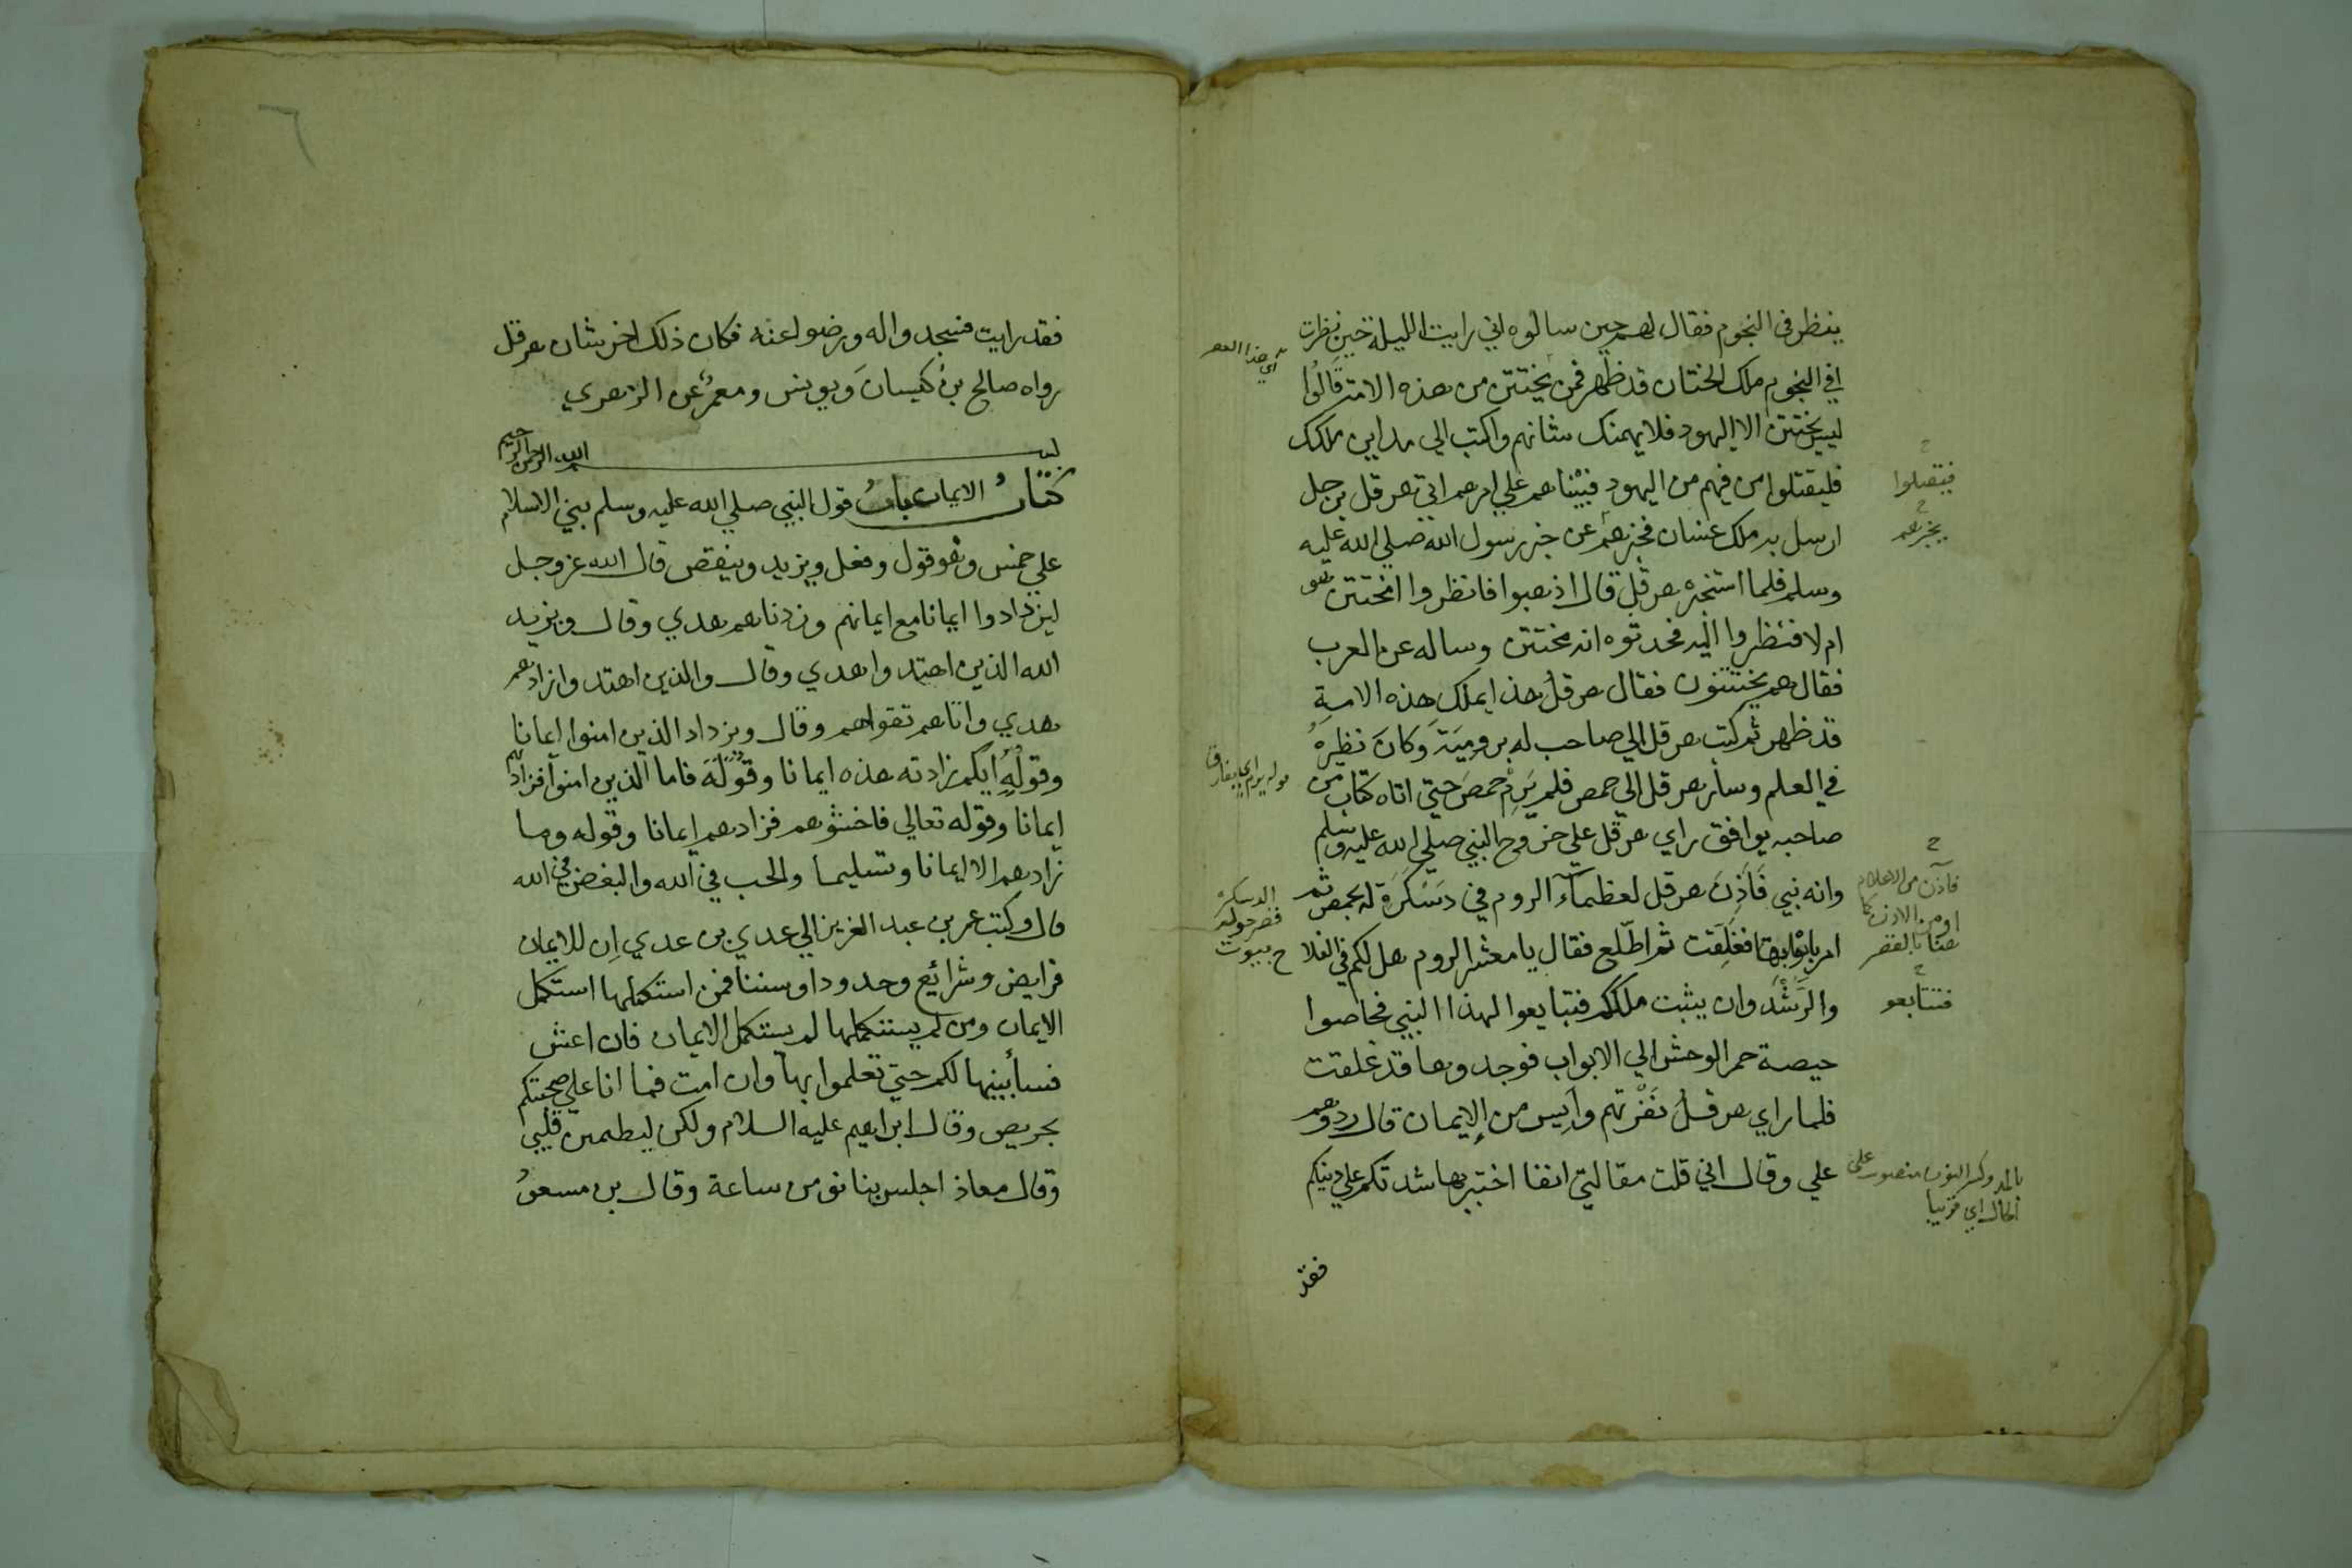 ينظر في النجوم فقال لهم حين سالوه اني رايت الليلة حين نظرت
في النجوم ملك الختان قد ظهر فمن يختتن من هذه الامة قالوا
ليس يختتن الا اليهود فلا يهمنك شانهم واكتب الي مداين ملكك
فليقتلوا من فيهم من اليهود فبيناهم علي امرهم اتي هرقل برجل
ارسل به ملك غسان فخبرهم عن خبر رسول الله صلي الله عليه
وسلم فلما استخبره هرقل قال اذهبوا فانظروا امختتن هو
ام لا فنظروا اليه فحدثوه انه مختتن وساله عن العرب
فقال هم يختتنون فقال هرقل هذا يملك هذه الامة
قد ظهر ثم كتب هرقل الي صاحب له برومية وكان نظيره
في العلم وسار هرقل الي حمص فلم يرم حمص حتي اتاه كتاب من
صاحبه يوافق راي هرقل علي خروج النبي صلي الله عليه وسلم
وانه نبي فاذن هرقل لعظماء الروم في دسكرة له بحمص ثم
امر بابوابها فغلقت ثم اطلع فقال يا معشر الروم هل لكم في الفلاح
والرشد وان يثبت ملككم فتبايعوا لهذا النبي فحاصوا
حيصة حمر الوحش الي الابواب فوجدوها قد غلقت
فلما راي هرقل نفرتهم وايس من الإيمان قال ردوهم
علي وقال اني قلت مقالتي انفا اختبر بها شدتكم علي دينكم
فقد
فيقتلوا
يخبرهم
فآذن من الاعلام
او من الاذن
فتتابعو
بالمد وكسر النون منصوب علي
الحال اي قريبا
الدسكرة
قصر حوله
بيوت
فقد رايت فسجدوا له ورضوا عنه فكان ذلك اخر شان هرقل
رواه صالح بن كيسان ويونس ومعمر عن الزهري
بسم الله الرحمن الرحيم
كتاب الايمان باب قول النبي صلي الله عليه وسلم بني الاسلام
علي خمس وهو قول وفعل ويزيد وينقص قال الله عز وجل
ليزدادوا ايمانا مع ايمانهم وزدناهم هدي وقال ويزيد
الله الذين اهتدوا هدي وقال والذين اهتدوا زادهم
هدي واتاهم تقواهم وقال ويزداد الذين امنوا ايمانا
وقوله ايكم زادته هذه ايمانا وقوله فاما الذين امنوا فزادتهم
ايمانا وقوله تعالي فاخشوهم فزادهم ايمانا وقوله وما
زادهم الا ايمانا وتسليما والحب في الله والبغض في الله
قال وكتب عمر بن عبد العزيز الي عدي بن عدي ان للايمان
فرايض وشرائع وحدودا وسننا فمن استكملها استكمل
الايمان ومن لم يستكملها لم يستكمل الايمان فان اعش
فسأبينها لكم حتي تعلموا بها وان امت فما انا علي صحبتكم
بحريص وقال ابراهيم عليه السلام ولكن ليطمين قلبي
وقال معاذ اجلس بنا نومن ساعة وقال بن مسعود
٦